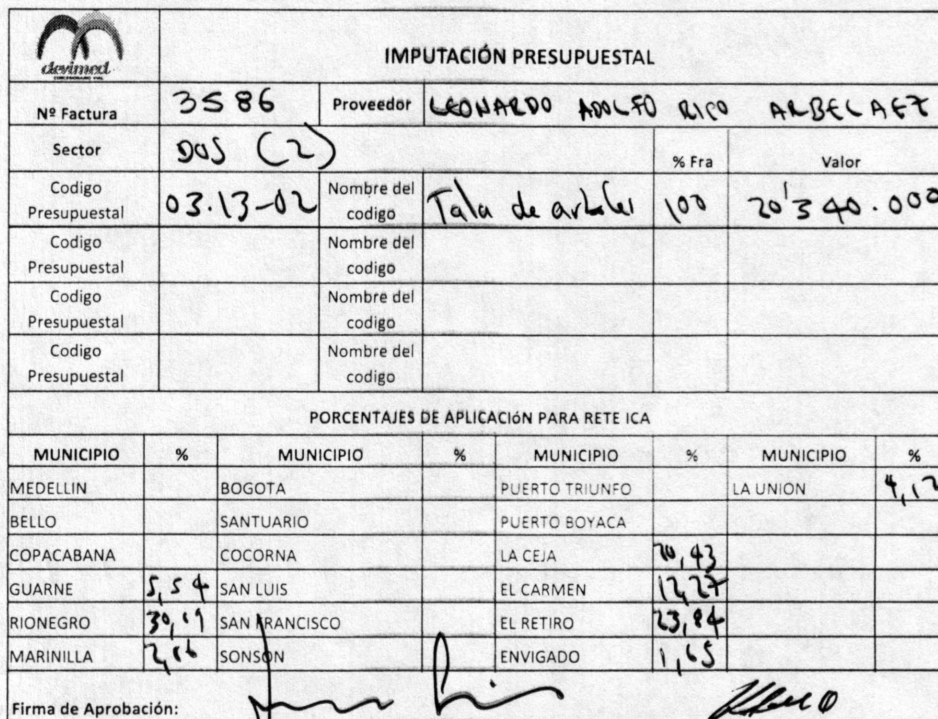 devimed
CONCESIONARIO VIAL
IMPUTACIÓN PRESUPUESTAL
Nº Factura 3586 Proveedor LEONARDO ADOLFO RICO ARBELAEZ
Sector DOS (2) % Fra Valor
Codigo Presupuestal 03.13-02 Nombre del codigo Tala de arboles 100 20'340.000
Codigo Presupuestal Nombre del codigo
Codigo Presupuestal Nombre del codigo
Codigo Presupuestal Nombre del codigo
PORCENTAJES DE APLICACIÓN PARA RETE ICA
MUNICIPIO % MUNICIPIO % MUNICIPIO % MUNICIPIO %
MEDELLIN BOGOTA PUERTO TRIUNFO LA UNION 4,12
BELLO SANTUARIO PUERTO BOYACA
COPACABANA COCORNA LA CEJA 20,43
GUARNE 5,54 SAN LUIS EL CARMEN 12,27
RIONEGRO 30,19 SAN FRANCISCO EL RETIRO 23,84
MARINILLA SONSÓN ENVIGADO 1,65
Firma de Aprobación: